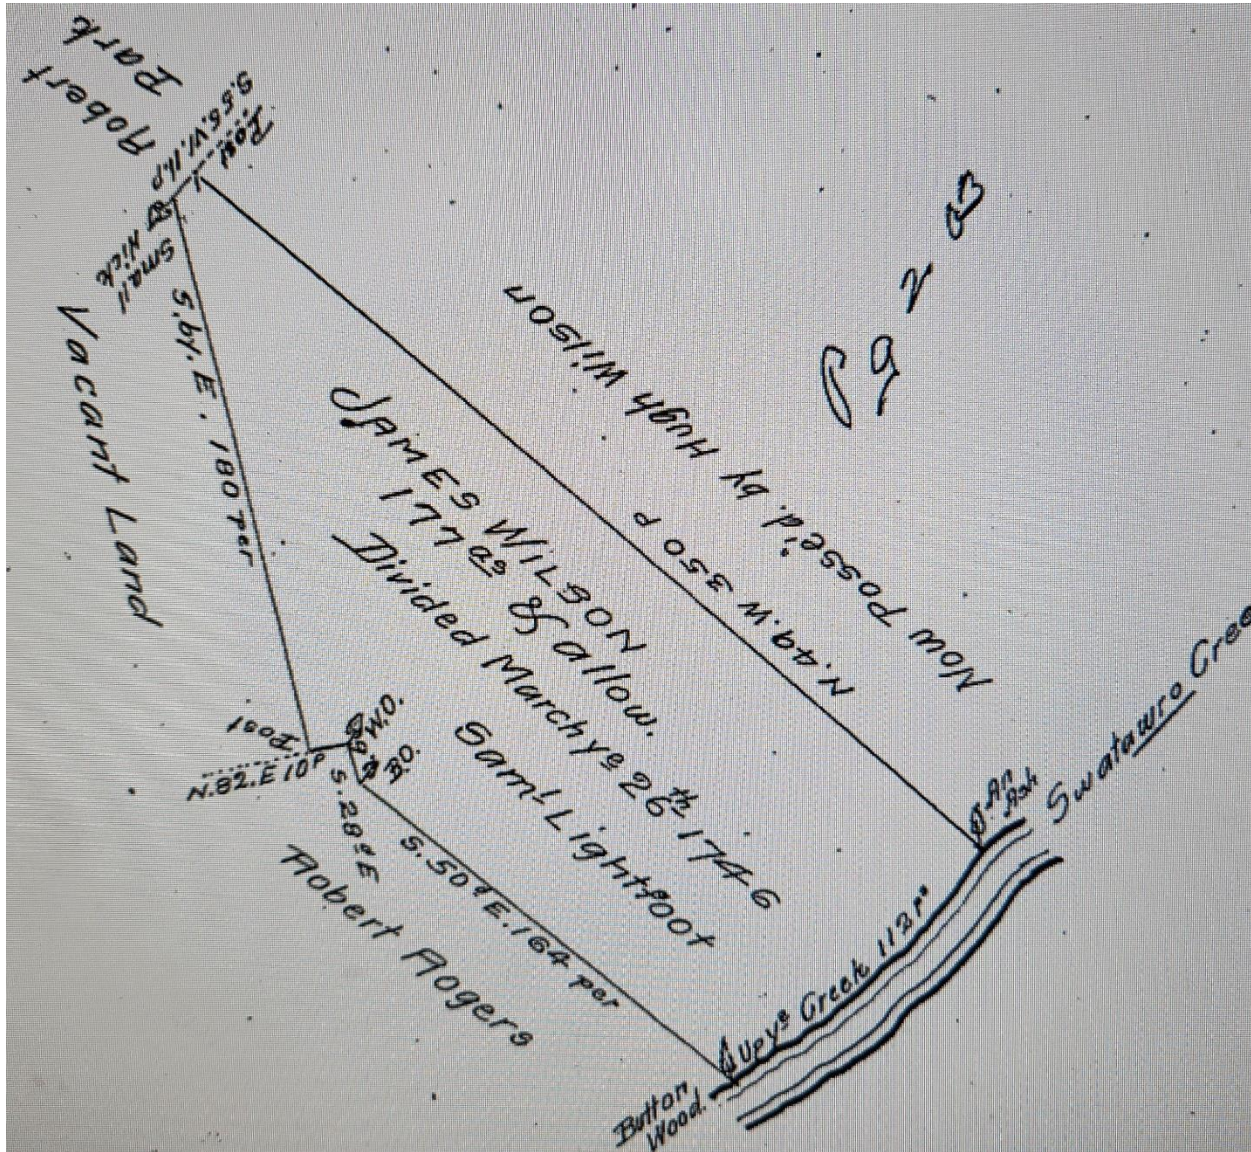 Robert
Park
S.56.W.11.p
Post
Small
Hick
S.by.E. 180 per
Vacant Land
Now Posse'd. by Hugh Wilson
N.49.W 350 P
JAMES WILSON
177 as & allow.
Divided March ye 26th 1746
Saml Lightfoot
Post
N.82.E 10 P
W.O.
B.O.
S.28°E
S.50°E.164 per
Robert Rogers
An
Ash
Swatawro Cree
Up ye Creek 112 Ps
Button
Wood.